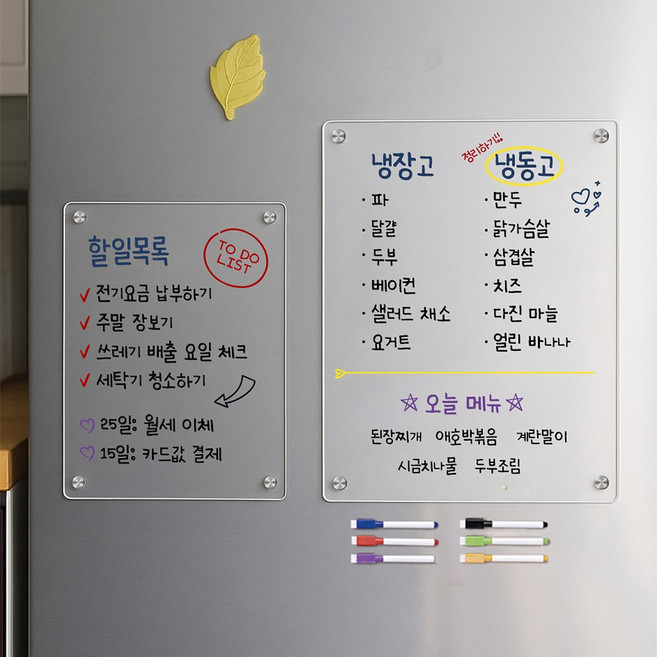 할일목록
TO DO
LIST
전기요금 납부하기
주말 장보기
쓰레기 배출 요일 체크
세탁기 청소하기
25일: 월세 이체
15일: 카드값 결제
냉장고
· 파
· 달걀
· 두부
· 베이컨
· 샐러드 채소
· 요거트
정리하기!!
냉동고
· 만두
· 닭가슴살
· 삼겹살
· 치즈
· 다진 마늘
· 얼린 바나나
오늘 메뉴
된장찌개 애호박볶음 계란말이
시금치나물 두부조림